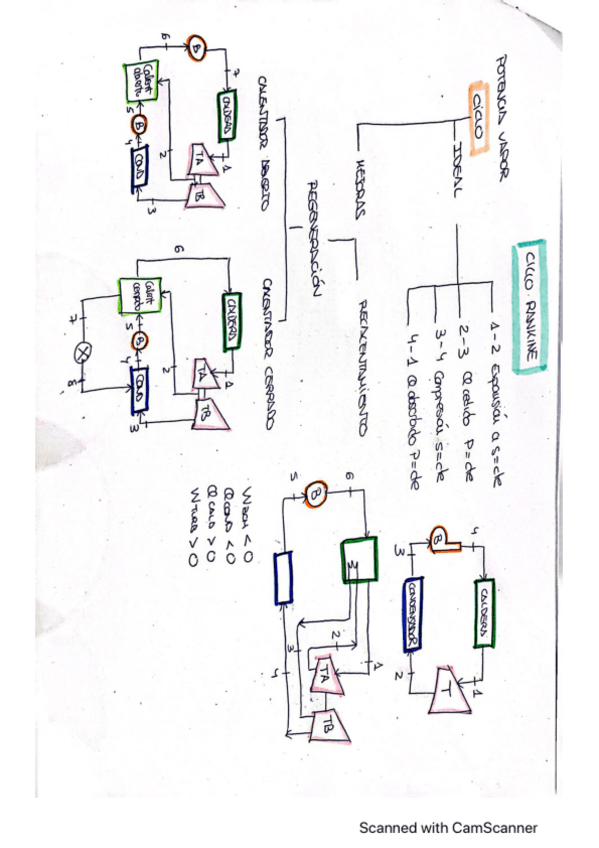 CICLO RANKINE
POTENCIA VAPOR
CICLO
IDEAL
1-2 Expansión a s=cte
2-3 Q cedido P=cte
3-4 Compresión s=cte
4-1 Q absorbido P=cte
4
CALDERA
1
B
T
3
CONDENSADOR
2
MEJORAS
RECALENTAMIENTO
REGENERACIÓN
6
1
B
2
TA
TB
5
3
4
CALENTADOR ABIERTO
CALENTADOR CERRADO
WBOM < 0
QCOND < 0
QCALD > 0
WTURB > 0
6
B
7
CALDERA
1
Calent
abierto
2
TA
TB
5
B
4
COND
3
6
CALDERA
1
Calent
cerrado
2
TA
TB
5
B
4
COND
3
7
8
Scanned with CamScanner